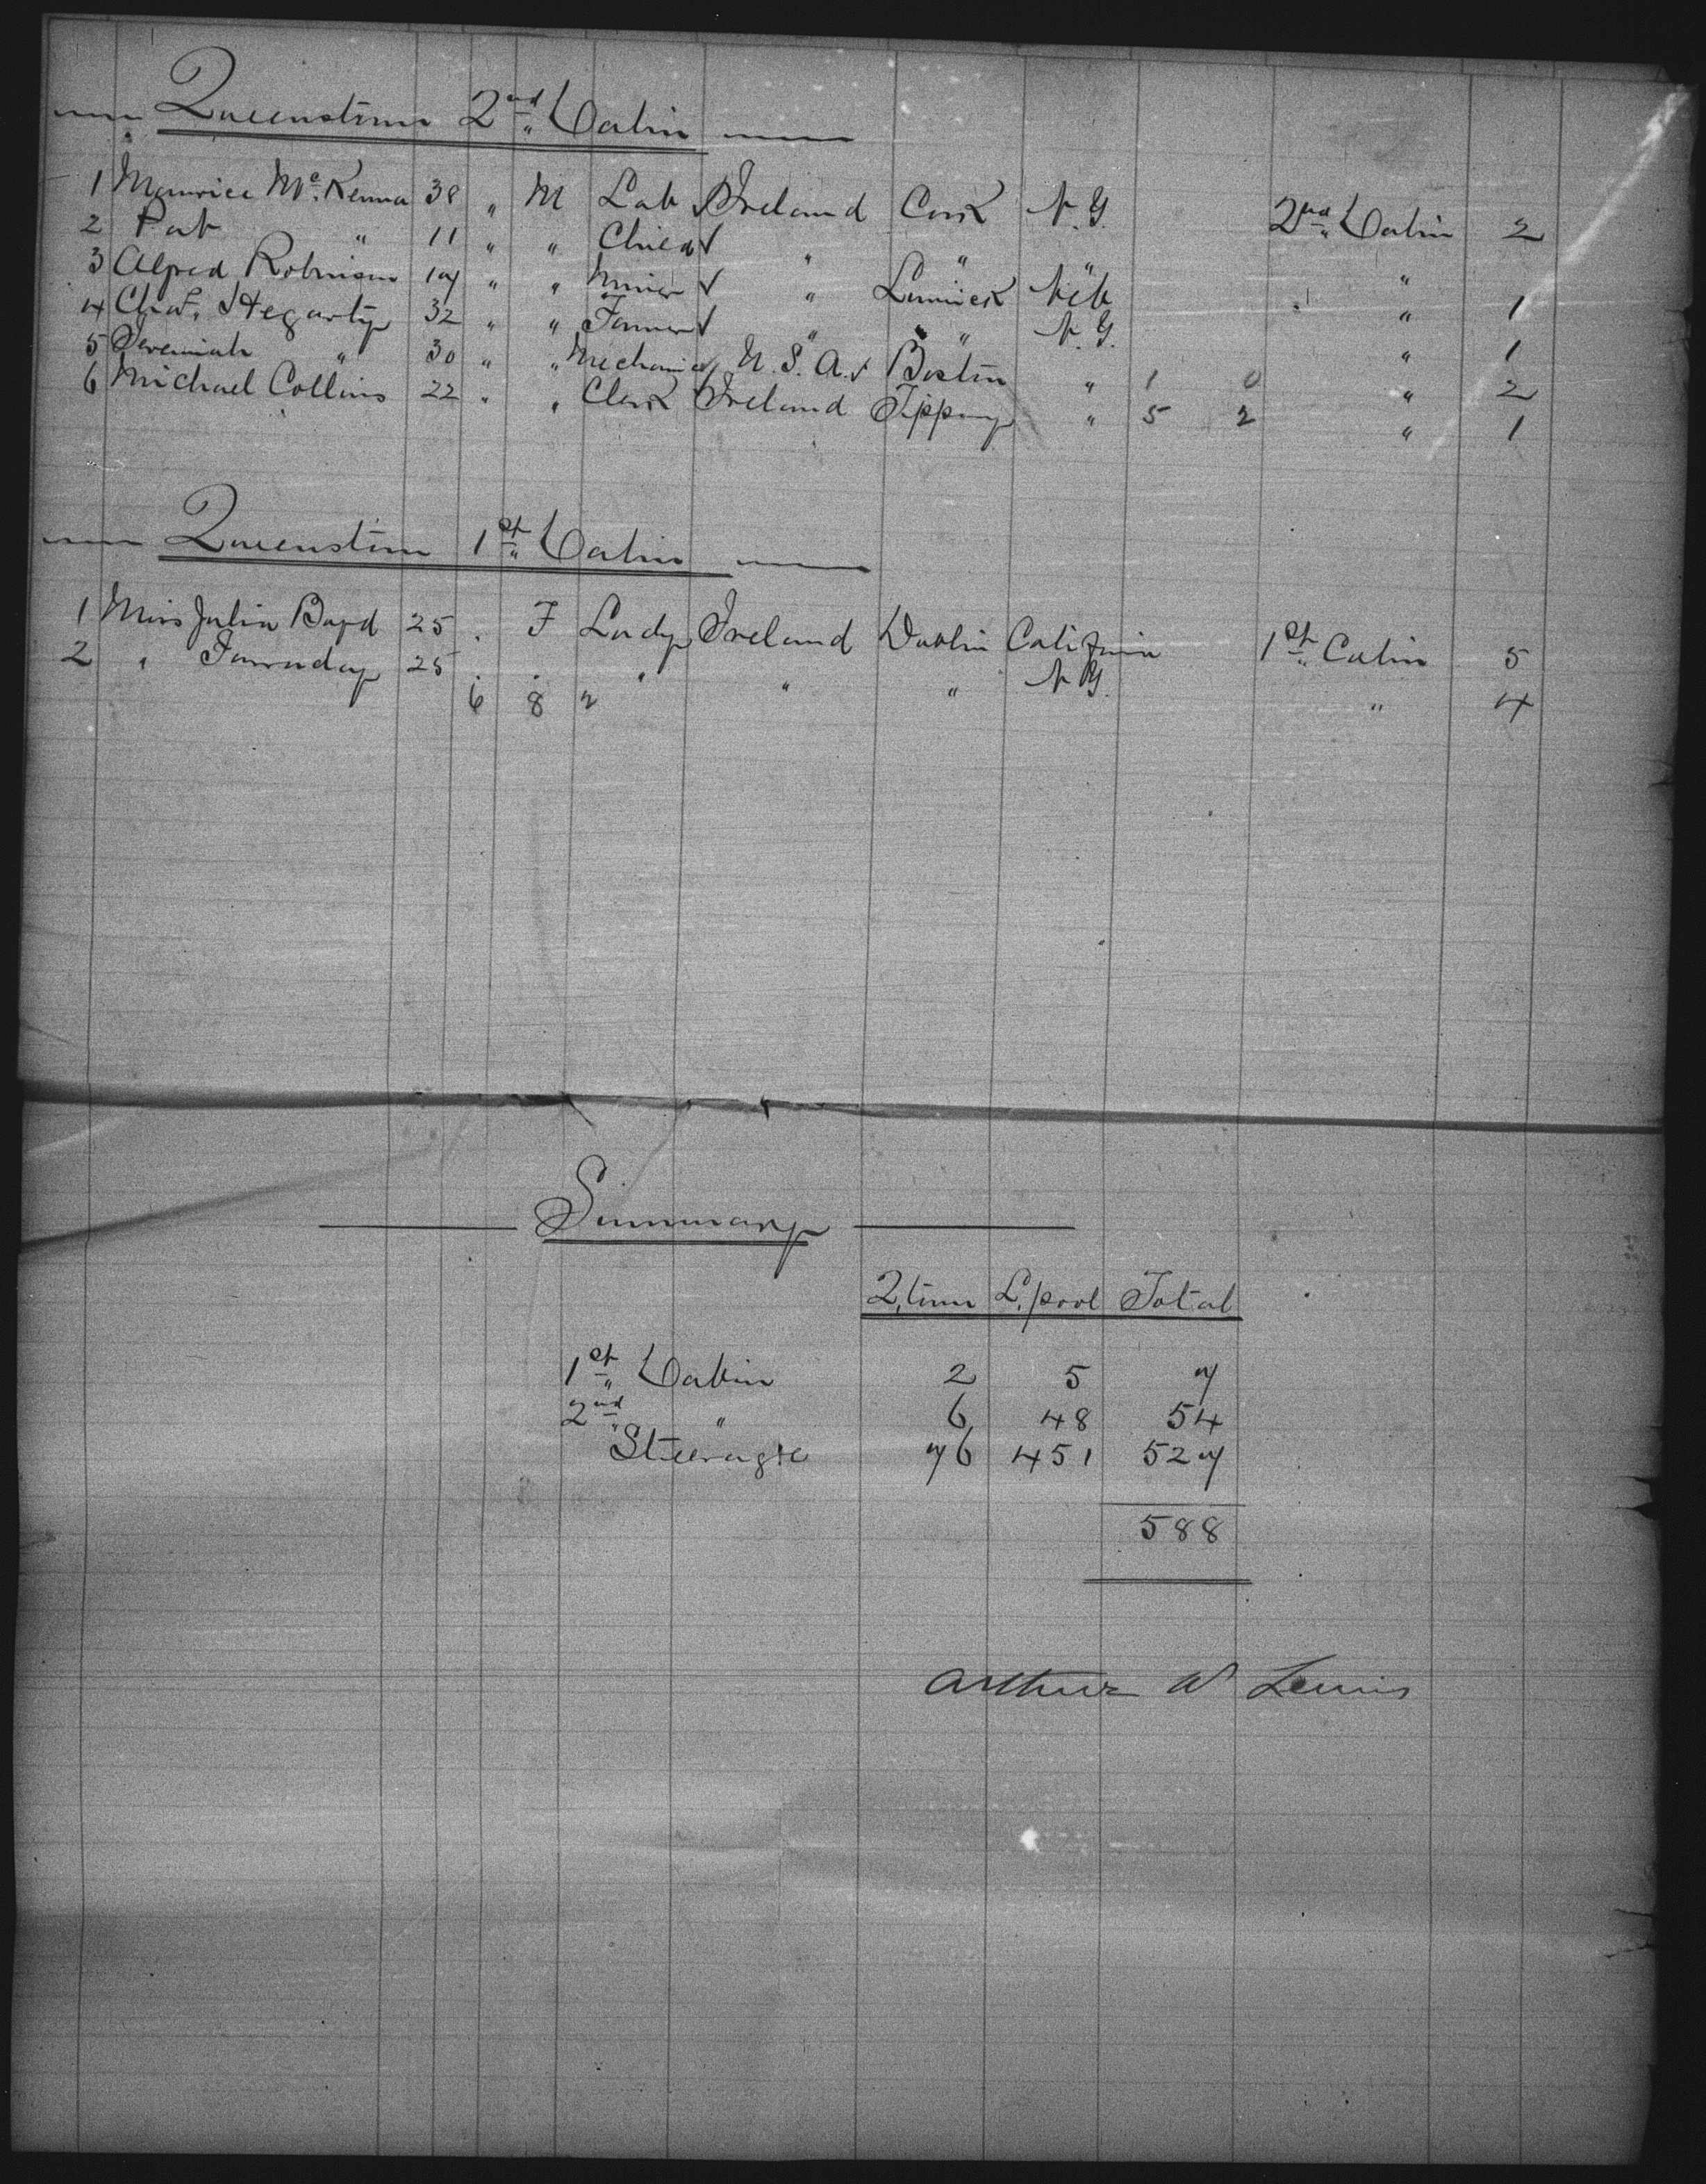 Queenstown 2nd Cabin
1 Maurice McKenna 38 " M Lab Ireland Cork N.Y. 2nd Cabin 2
2 Pat " 11 " " Child " " " "
3 Alfred Robinson 19 " " Miner " Limrick Neb " 1
4 Chas. Hegarty 32 " " Farmer " " N.Y. " 1
5 Jeremiah " 30 " " Mechanic U.S.A. Boston " 1 0 " 2
6 Michael Collins 22 " " Clerk Ireland Tippary " 5 2 " 1
Queenstown 1st Cabin
1 Miss Julia Boyd 25 . F Lady Ireland Dublin California 1st Cabin 5
2 " 25 . . " " " N.Y. " 4
6 8 2
Summary
Q.town L.pool Total
1st Cabin 2 5 7
2nd " 6 48 54
Steerage 76 451 527
588
Arthur W Lewis